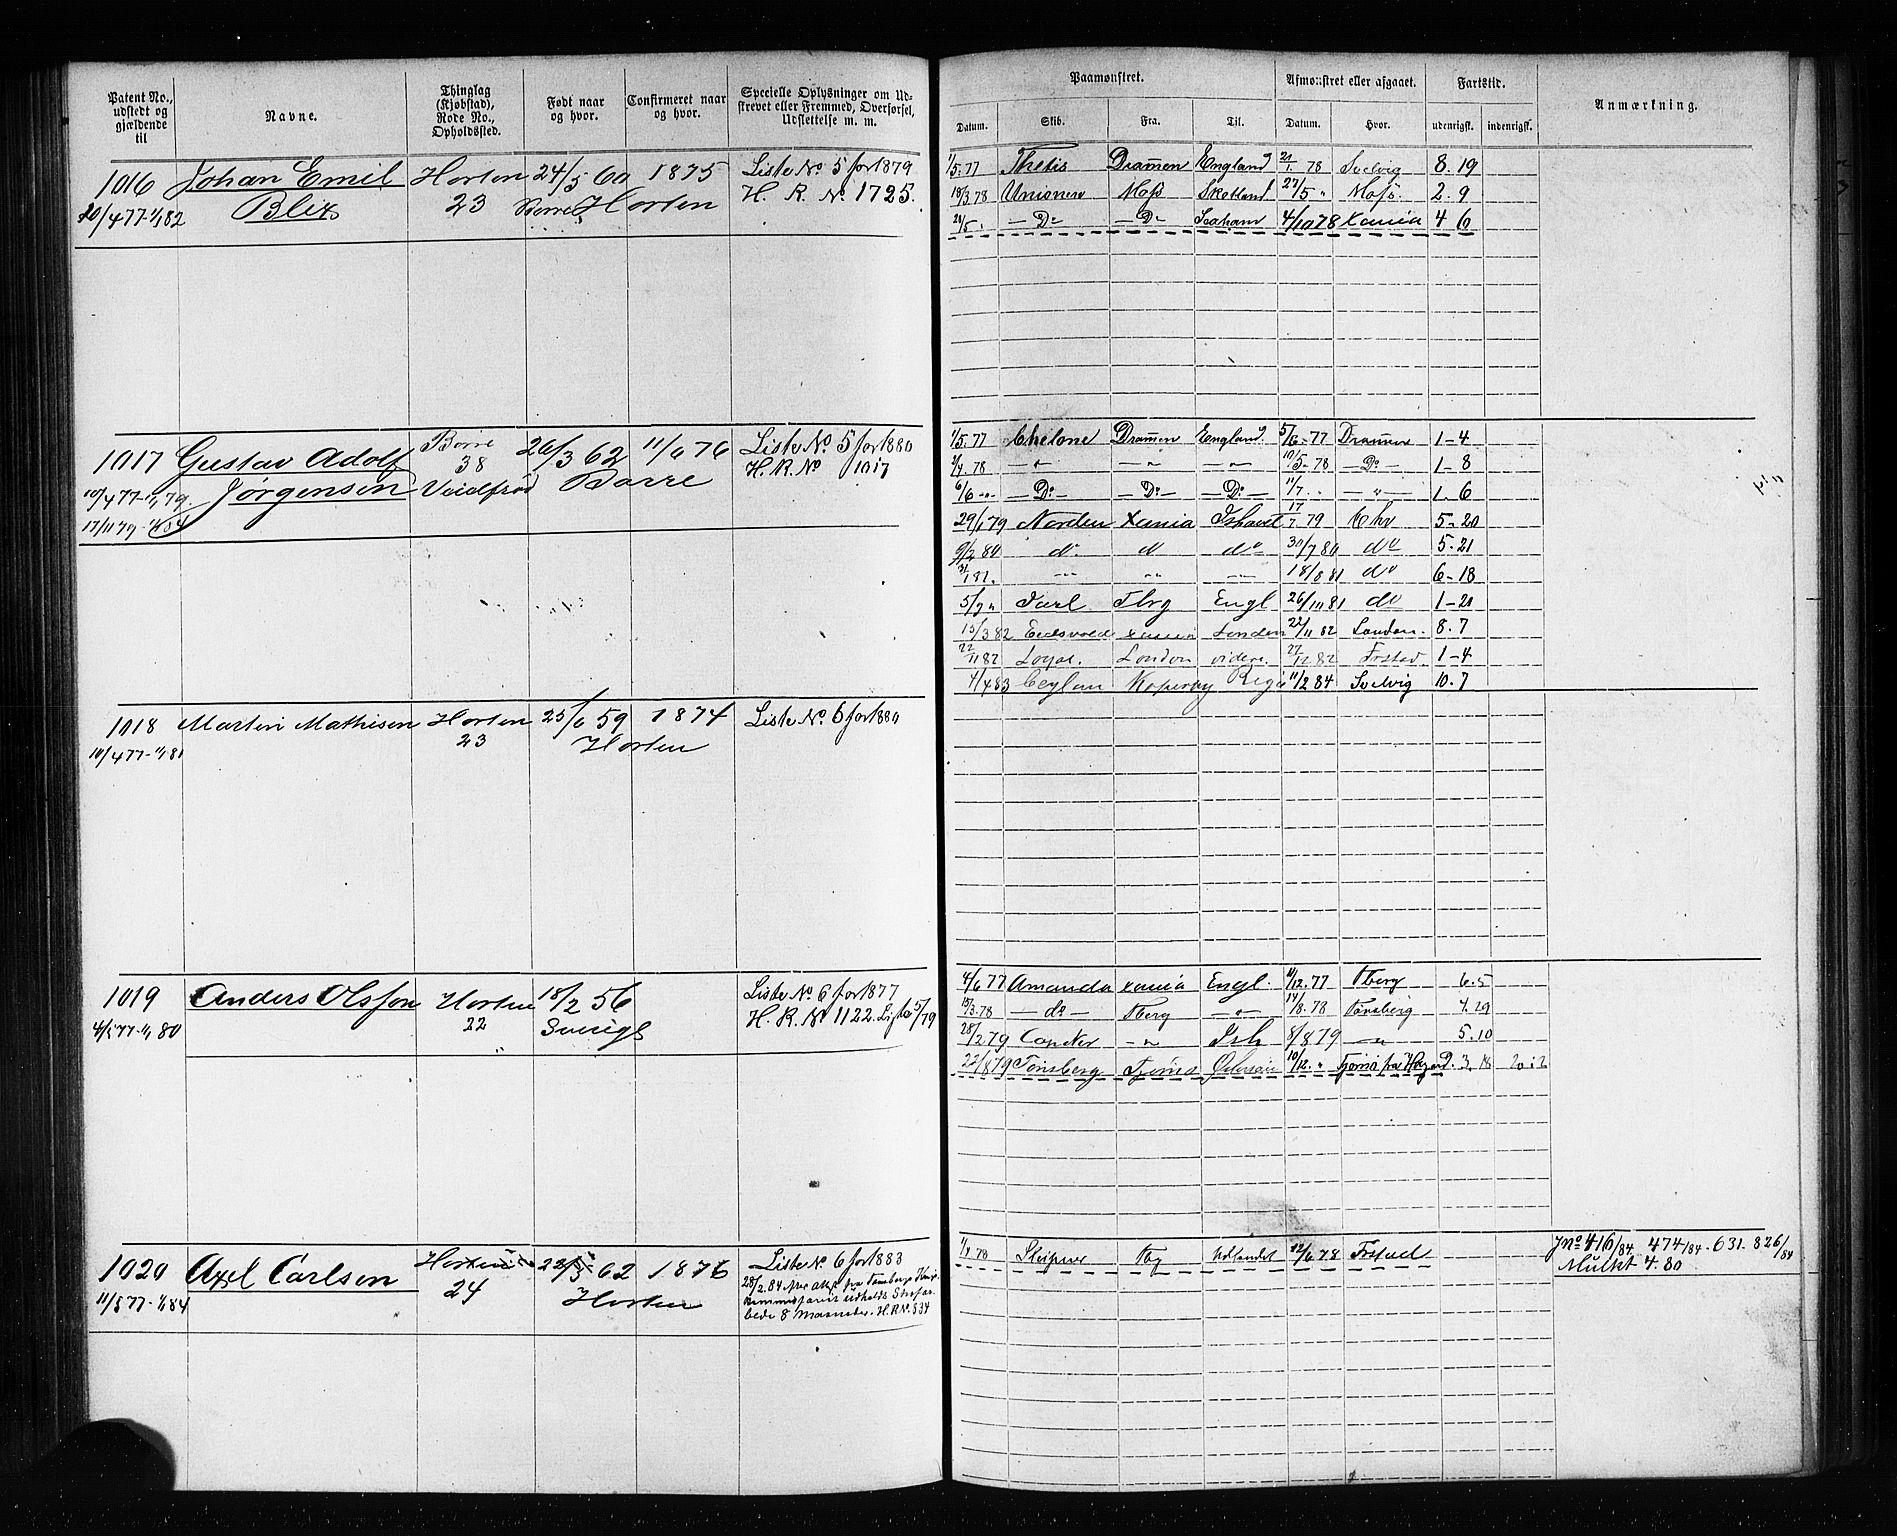 Patent No., udstedt og gjældende til
Navne.
Thinglag (Kjøbstad), Rode No., Opholdssted.
Født naar og hvor.
Confirmeret naar og hvor.
Specielle Oplysninger om Udskrevet eller Fremmed, Overførsel, Udslettelse m. m.
Paamønstret.
Afmønstret eller afgaaet.
Fartstid.
Anmærkning.
Datum. Skib. Fra. Til. Datum. Hvor. udenrigsk. indenrigsk.
1016 Johan Emil Horten 24/5 60 1875 Liste No 5 for 1879
Blix 23 Borre Horten H. R. No 1725.
1/5.77 Thetis Drammen England 21/1. 78 Svelvig 8. 19
18/3.78 Unionen Moss Skotland 27/5 " Moss. 2. 9
— Do — — Do Seaham 4/10 78 Xania 4 6
1017 Gustav Adolf Borre 26/3 62 11/6 76 Liste No. 5 for 1880
Jørgensen 38 Borre H. R. No 1017
1/5.77 Chelone Drammen England. 5/6-77 Drammen 1-4
1/4.78 — " — — " — — " — 10/5-78 — Do — 1-8
6/6 -"- — Do — — Do — — Do — 11/7 — " — 1. 6
29/1 79 Norden Xania Ishavet 17/7. 79 Chr 5-20
9/2 80 do do do 30/7 80 do 5. 21
do 6-18
5/9 " Jarl Tbrg Engl 26/10 81 do 1-21
15/3 82 Eidsvold Xania London 22/11 82 London. 8. 7
22/11 82 Loyal. London videre. 27/12 82 Frstad. 1-4
4/4 83 Ceylon 11/2 84 Svelvig 10. 7
1018 Martin Mathisen Horten 25/6 59 1874 Liste No. 6 for 1880
10/4 77-1/1 81 23 Horten
1019 Anders Olsson Horten 18/2 56 Liste No 6 for 1877
22 Sverige H. R. No 1122.
4/6 77 Amanda Xania Engl. 11/12.77 Tberg 6. 5
15/3.78 — do — Tberg — " — 14/8. 78 Tønsberg 4. 29
28/2 79 Condor — " Ish 8/8 79 — " 5. 10
22/8 79 Tønsberg Tjømø Østersøen 10/12. " Tjømø fra 3. 18
1020 Axel Carlsen Horten 62 1876 Liste No. 6 for 1883
11/8 77-1/1 84 24 Horten 28/2. 84 fra Tønsbergs
8 Maaneder. H.R.No. 834
1/4.78 Sleipner Tbg Hollandet 12/6 78 Frstad
Jno 416/84 474/84. 631. 826/84
Mulkt 4. 80